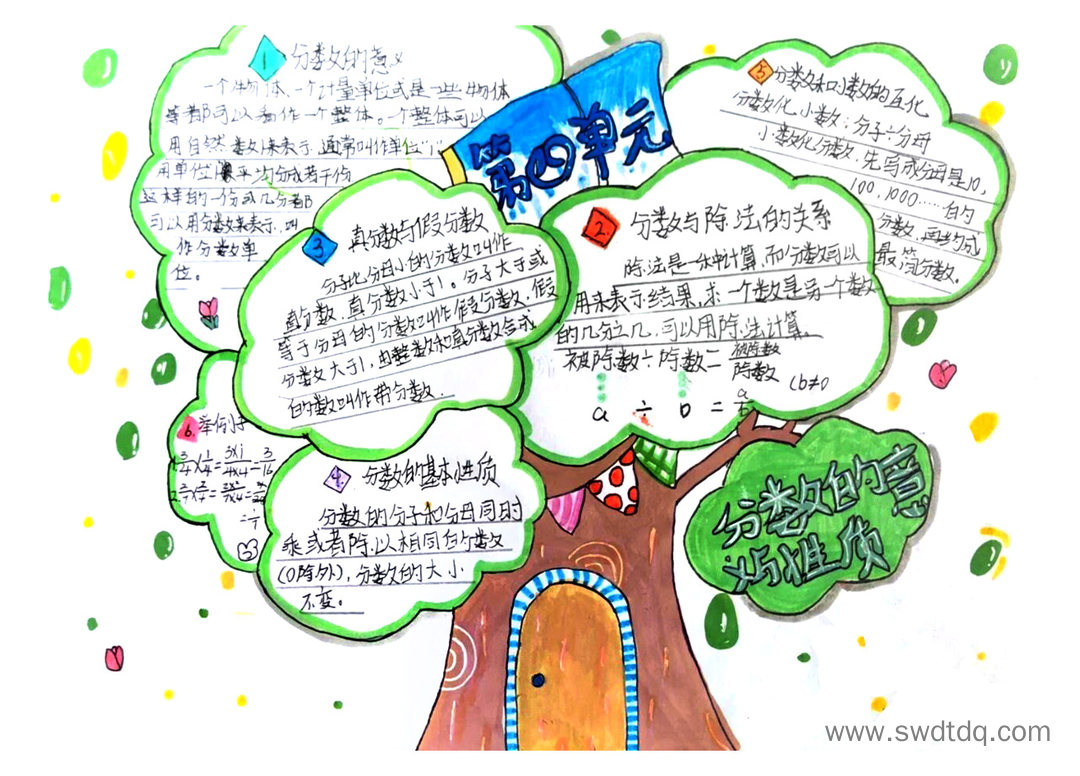 1 分数的意义
一个物体、一个计量单位或是一些物体
等都可以看作一个整体。一个整体可以
用自然数1来表示,通常叫作单位"1"
用单位 平均分成若干份
这样的一份或几份都
可以用分数来表示,叫
作分数单
位。
第四单元
5 分数和小数的互化
分数化小数:分子÷分母
小数化分数,先写成分母是10,
100,1000……的
分数,再约成
最简分数。
3 真分数与假分数
分子比分母小的分数叫作
真分数,真分数小于1。分子大于或
等于分母的分数叫作假分数,假
分数大于1,由整数和真分数合成
的数叫作带分数.
2. 分数与除法的关系
除法是一种计算,而分数可以
用来表示结果,求一个数是另一个数
的几分之几,可以用除法计算。
被除数÷除数=被除数/除数
a ÷ b = a/b (b≠0
6. 举例子
3/4×1/4=3×1/4×4=3/16
4. 分数的基本性质
分数的分子和分母同时
乘或者除以相同的数
(0除外),分数的大小
不变。
分数的意
义与性质
www.swdtdq.com